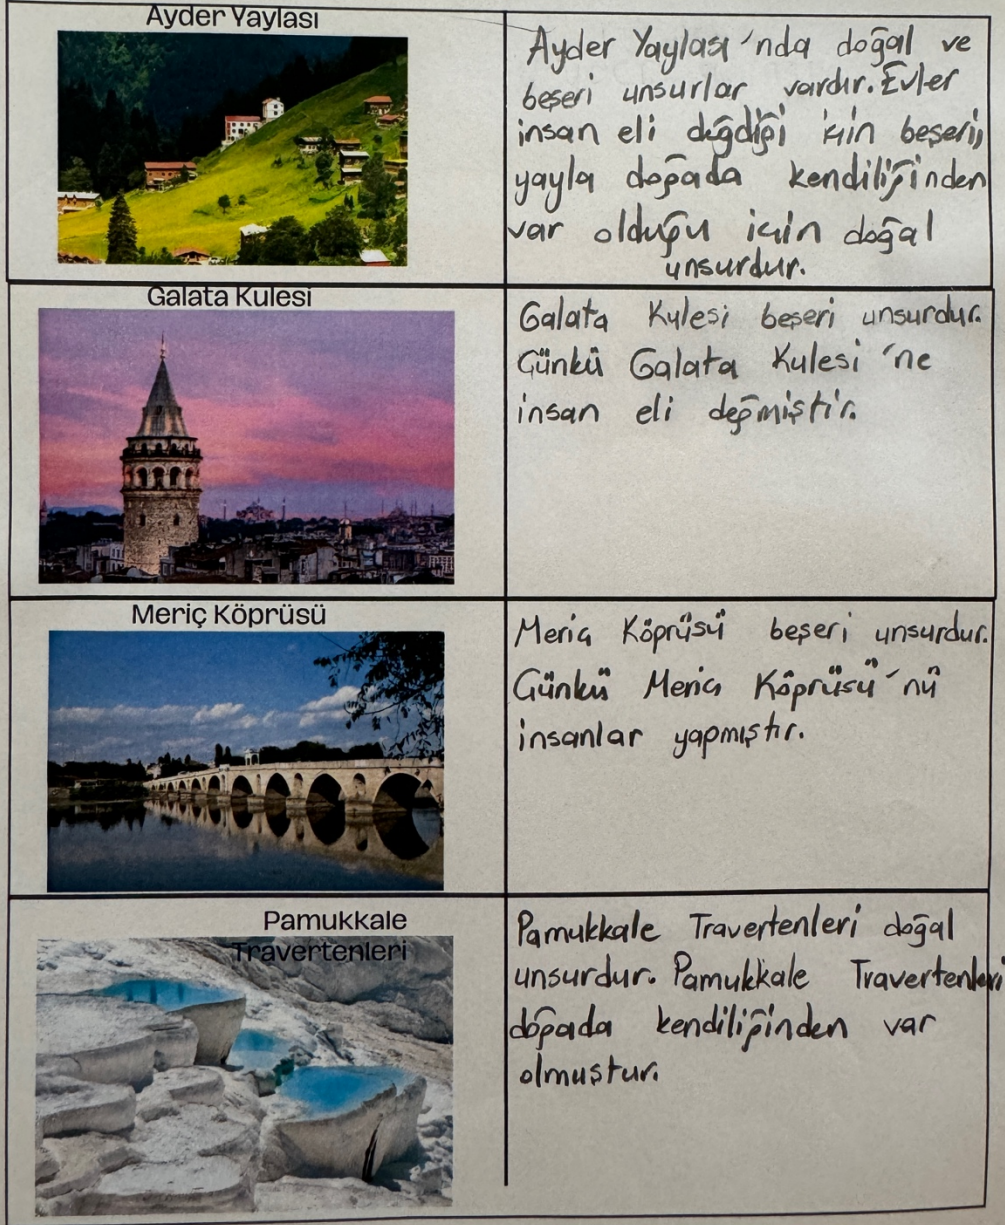 Ayder Yaylası
Ayder Yaylası'nda doğal ve
beşeri unsurlar vardır. Evler
insan eli değdiği için beşeri,
yayla doğada kendiliğinden
var olduğu için doğal
unsurdur.
Galata Kulesi
Galata Kulesi beşeri unsurdur.
Çünkü Galata Kulesi'ne
insan eli değmiştir.
Meriç Köprüsü
Meriç Köprüsü beşeri unsurdur.
Çünkü Meriç Köprüsü'nü
insanlar yapmıştır.
Pamukkale
Travertenleri
Pamukkale Travertenleri doğal
unsurdur. Pamukkale Travertenleri
doğada kendiliğinden var
olmuştur.